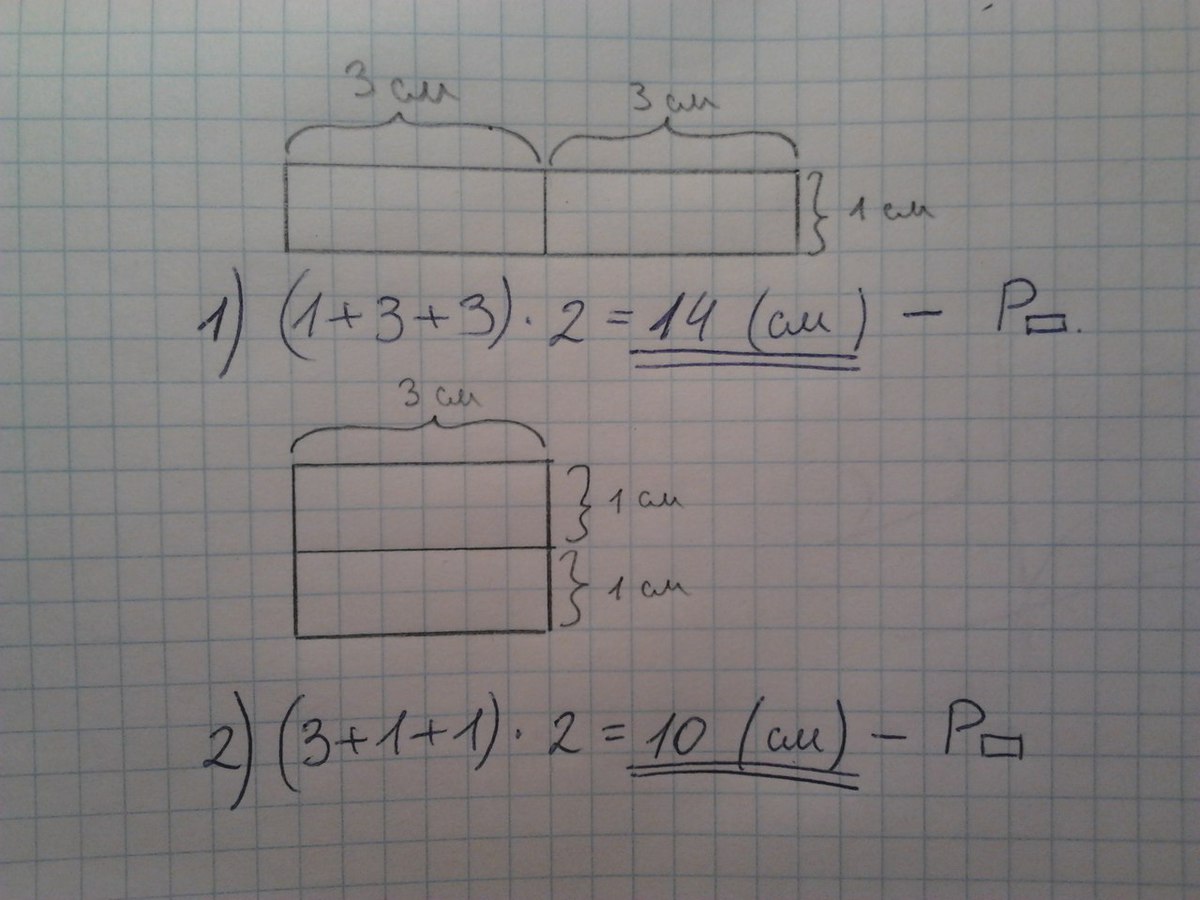 3 см 3 см
1 см
1) (1+3+3)·2=14 (см) — P▭.
3 см
1 см
1 см
2) (3+1+1)·2=10 (см) — P▭